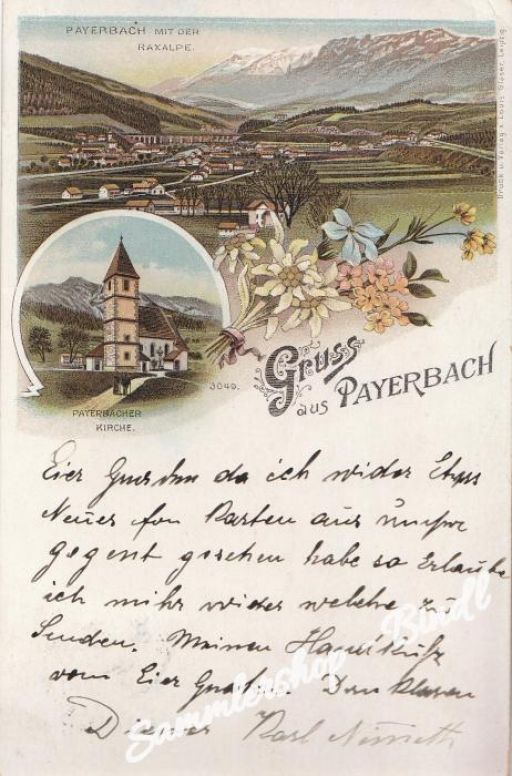 PAYERBACH MIT DER
RAXALPE.
Druck u. Verlag v. Louis Glaser, Leipzig.
3049.
PAYERBACHER
KIRCHE.
Gruss
aus PAYERBACH
Eier Gnaden da ich wider Etwas
Neues fon Karten aus unsre
gegent gesehen habe so Erlaube
ich mihr wider welche zu
Senden. Meinen Handkuß
vom Eier Gnaden Dankbaren
Diener Karl
Sammlershop - Bindl